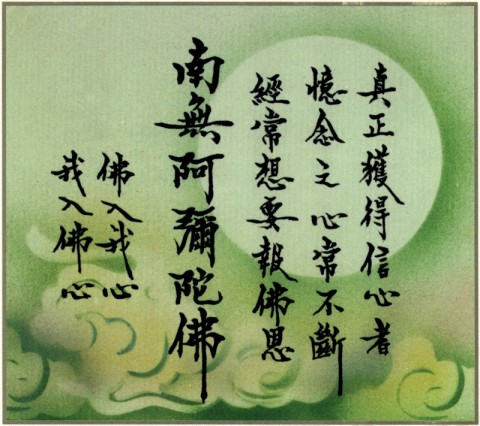 真正獲得信心者
憶念之心常不斷
經常想要報佛恩
南無阿彌陀佛
佛入我心
我入佛心